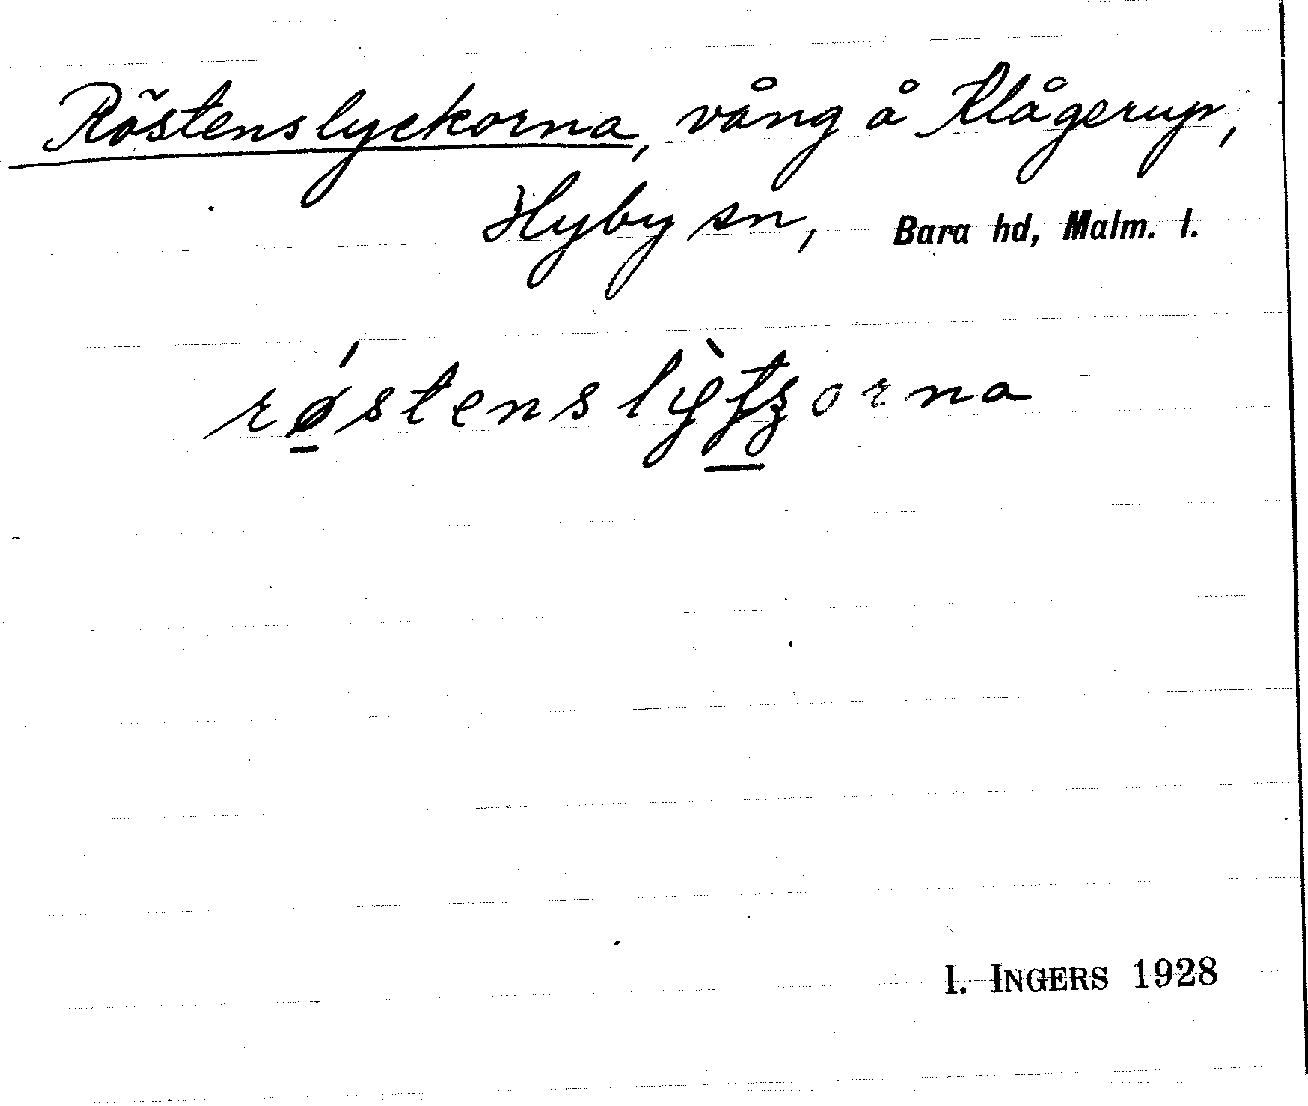 Röstenslyckorna, vång å Klågerup,
Hyby sn, Bara hd, Malm. l.
I. INGERS 1928